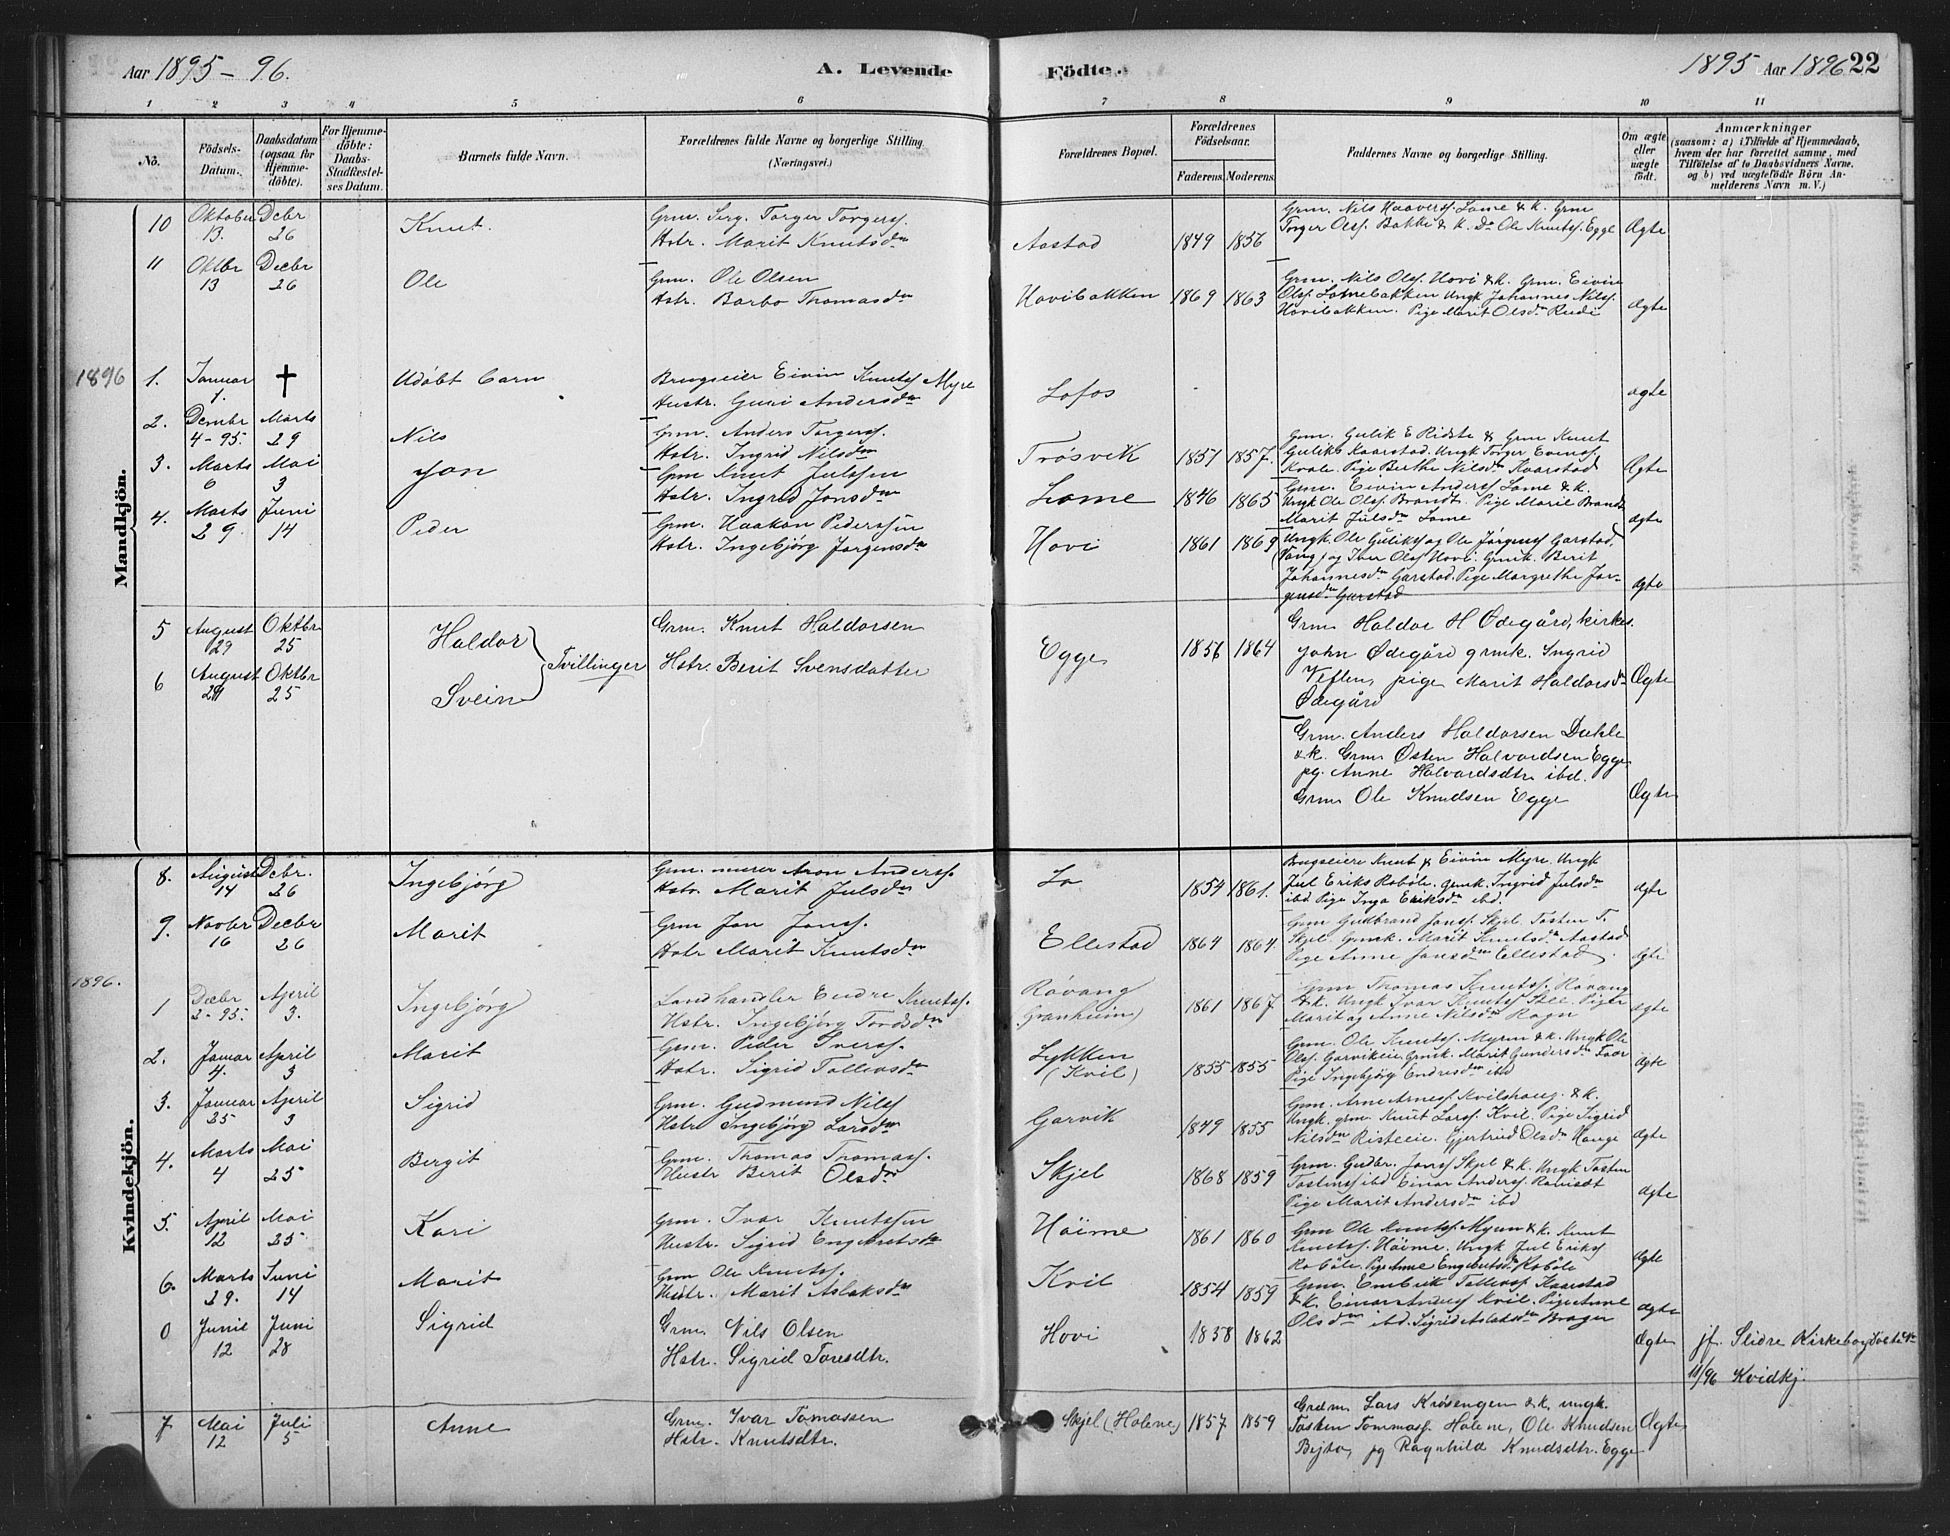 Aar 1895 - 96. A. Levende Födte. 1895 Aar 1896 22
1 2 3 4 5 6 7 8 9 10 11
No. Födsels-Datum. Daabsdatum (ogsaa for Hjemme-döbte). For Hjemme-döbte: Daabs-Stadfæstelses Datum. Barnets fulde Navn. Forældrenes fulde Navne og borgerlige Stilling. (Næringsvei.) Forældrenes Bopæl. Forældrenes Födselsaar. Faderens. Moderens. Faddernes Navne og borgerlige Stilling. Om ægte eller uægte födt. Anmærkninger
(saasom: a) i Tilfælde af Hjemmedaab, hvem der har forrettet samme, med Tilföielse af to Daabsvidners Navne, og b) ved uægtefödte Börn Anmelderens Navn m. V.)
Mandkjön.
10 Oktober 13. Decbr 26 Knut. Grm. Serg. Torger Torgerss.
Hstr. Marit Knutsdn Aastad 1849 1856
Grm. Nils Haaverss. Lome & k. Grm
Torger Olss. Bakke & k. Do Ole Knutss. Egge Ægte
11 Oktbr 13 Decbr 26 Ole Grm. Ole Olsen
Hstr. Barbo Thomasdn Hovibakken 1869 1863
Grm. Nils Olss. Hovi & k. Grm. Eivin
Olss. Lomebakken Ungk Johannes Nilss.
Hovibakken. Pige Marit Olsdn Rudi ægte
1896 1. Januar 1. † Udöbt barn Brugseier Eivin Knutss Myre
Hustr. Guri Andersdn Lofos ægte
2. Dembr 4-95. Marts 29 Nils Grm. Anders Torgerss.
Hstr. Ingrid Nilsdn Trösvik 1851 1857.
Grm. Gulik E Ridste & Grm Knut
Guliks Kaarstad. Ungk Torger Evenss.
Kvale. Pige Berthe Nilsdn Kvarstad Ægte
3. Marts 6 Mai 3 Jon Grm Knut Julssen
Hstr. Ingrid Jonsdn Lome 1846 1865
Grm. Eivin Anderss Lome & k.
Ungk Ole Olss. Brandt. Pige Marie Brandt
Marit Julsdn Lome ægte
4. Marts 29. Juni 14 Peder Grm. Haakon Pederssen
Hstr. Ingebjörg Jörgensdn Hovi 1861 1869
Ungk Ole Gulikss og Ole Jörgenss Garstad,
Vang) og Iver Olss Hovi. Gmk. Berit
Johannesdn Garstad. Pige Margrethe Jör-
gensdn Garstad ægte
5 August 29 Oktbr 25 Haldor
6 August 29 Oktbr 25 Svein
Tvillinger
Grm. Knut Haldorsen
Hstr. Berit Svensdatter Egge 1856 1864
Grm Haldor H Ödegård, kirkes.
John Ödegård gmk. Ingrid
Veflen, pige Marit Haldorsdn
Ödegård Ægte
Grm. Anders Haldorsen Dahle
& k. Grm Östen Halvardsen Egge
pg. Anne Halvardsdtr ibd.
Grm Ole Knudsen Egge Ægte
Kvindekjön.
8. August 14 Decbr. 26 Ingebjörg Grm. murer Aron Anderss.
Hstr Marit Julsdn Lo 1854 1861.
Brugseiere Knut & Eivin Myre. Ungk
Jul Eriks Roböle. gmk. Ingrid Julsdn
ibd Pige Inga Eriksdn ibd. ægte
9. Novbr 16 Decbr 26 Marit Grm Jon Jonss.
Hstr Marit Knutsdn Ellestad 1864 1864.
Grm Gudbrand Jonss. Skjel Tosten T.
Skjel. Gmk. Marit Knutsdn Aastad
Pige Anne Jonsdn Ellestad. ægte
1896. 1 Decbr 2-95. April 3. Ingebjörg Landhandler Endre Knutss.
Hstr. Ingebjörg Tordsdn Rövang
Granheim) 1861 1867
Grm Thomas Knutss. Rövang
& k. Ungk Ivar Knutss Stee. Piger
Marit og Anne Nilsdn Rogn ægte
2. Januar 4. April 3 Marit Grm. Peder Iverss.
Hstr. Sigrid Tollevsdn Lykken
(Kvil) 1855 1855
Grm. Ole Knutss. Myren & k. Ungk Ole
Olss. Garvikeie, Gmk. Marit Gundersdn
Pige Ingebjörg Endresdn ibd ægte
3. Januar 25 April 3 Sigrid Grm. Gudmund Nilss
Hstr Ingebjörg Larsdn Garvik 1849 1855
Grm. Arne Arness Kvilshaug. & k.
Ungk. grm. Knut Larss. Kvil. Pige Sigrid
Nilsdn Risteeie. Gjertrud Olsdn Hauge ægte
4. Marts 4 Mai 25 Bergit Grm. Thomas Thomass.
Hustr Berit Olsdn Skjel 1868 1859
Grm. Gudbr. Jonss Skjel & k. Ungk Tosten
Tostenss ibd Einar Anderss. Ranisæt
Pige Marit Andersdn ibd ægte
5. April 12 Mai 25 Kari Grm. Ivar Knutssen
Hustr. Sigrid Engebretsdn Höime 1861 1860
Grm Ole Knutss. Myren & k. Knut
Knutss. Höime. Ungk Jul Eriks
Roböle. Pige Anne Engebretsdn Roböle ægte
6. Marts 29. Juni 14 Marit Grm Ole Knutss.
Hustr. Marit Aslaksdn Kvil 1854 1859
Grm. Embrik Tollevss Kaustad
& k. Einar Anderss Kvil. Pige Anne
Olsdn ibd. Sigrid Aslaksdn Brager ægte
0 Junii 12 Juni 28 Sigrid Grm. Nils Olsen
Hstr. Sigrid Toresdtr. Hovi 1858 1862 Ægte jf. Slidre Kirkebog
11/96 Kvindkj.
7 Mai 12 Juli 5 Anne Grm. Ivar Tomassen
Hstr. Knutsdtr. Skjel (Holene) 1857 1859
Grdm. Lars Krösengen & k. ungk.
Tosten Tommass. Holene, Ole Knudsen
Bejto, pg Ragnhild Knudsdtr. Egge Ægte